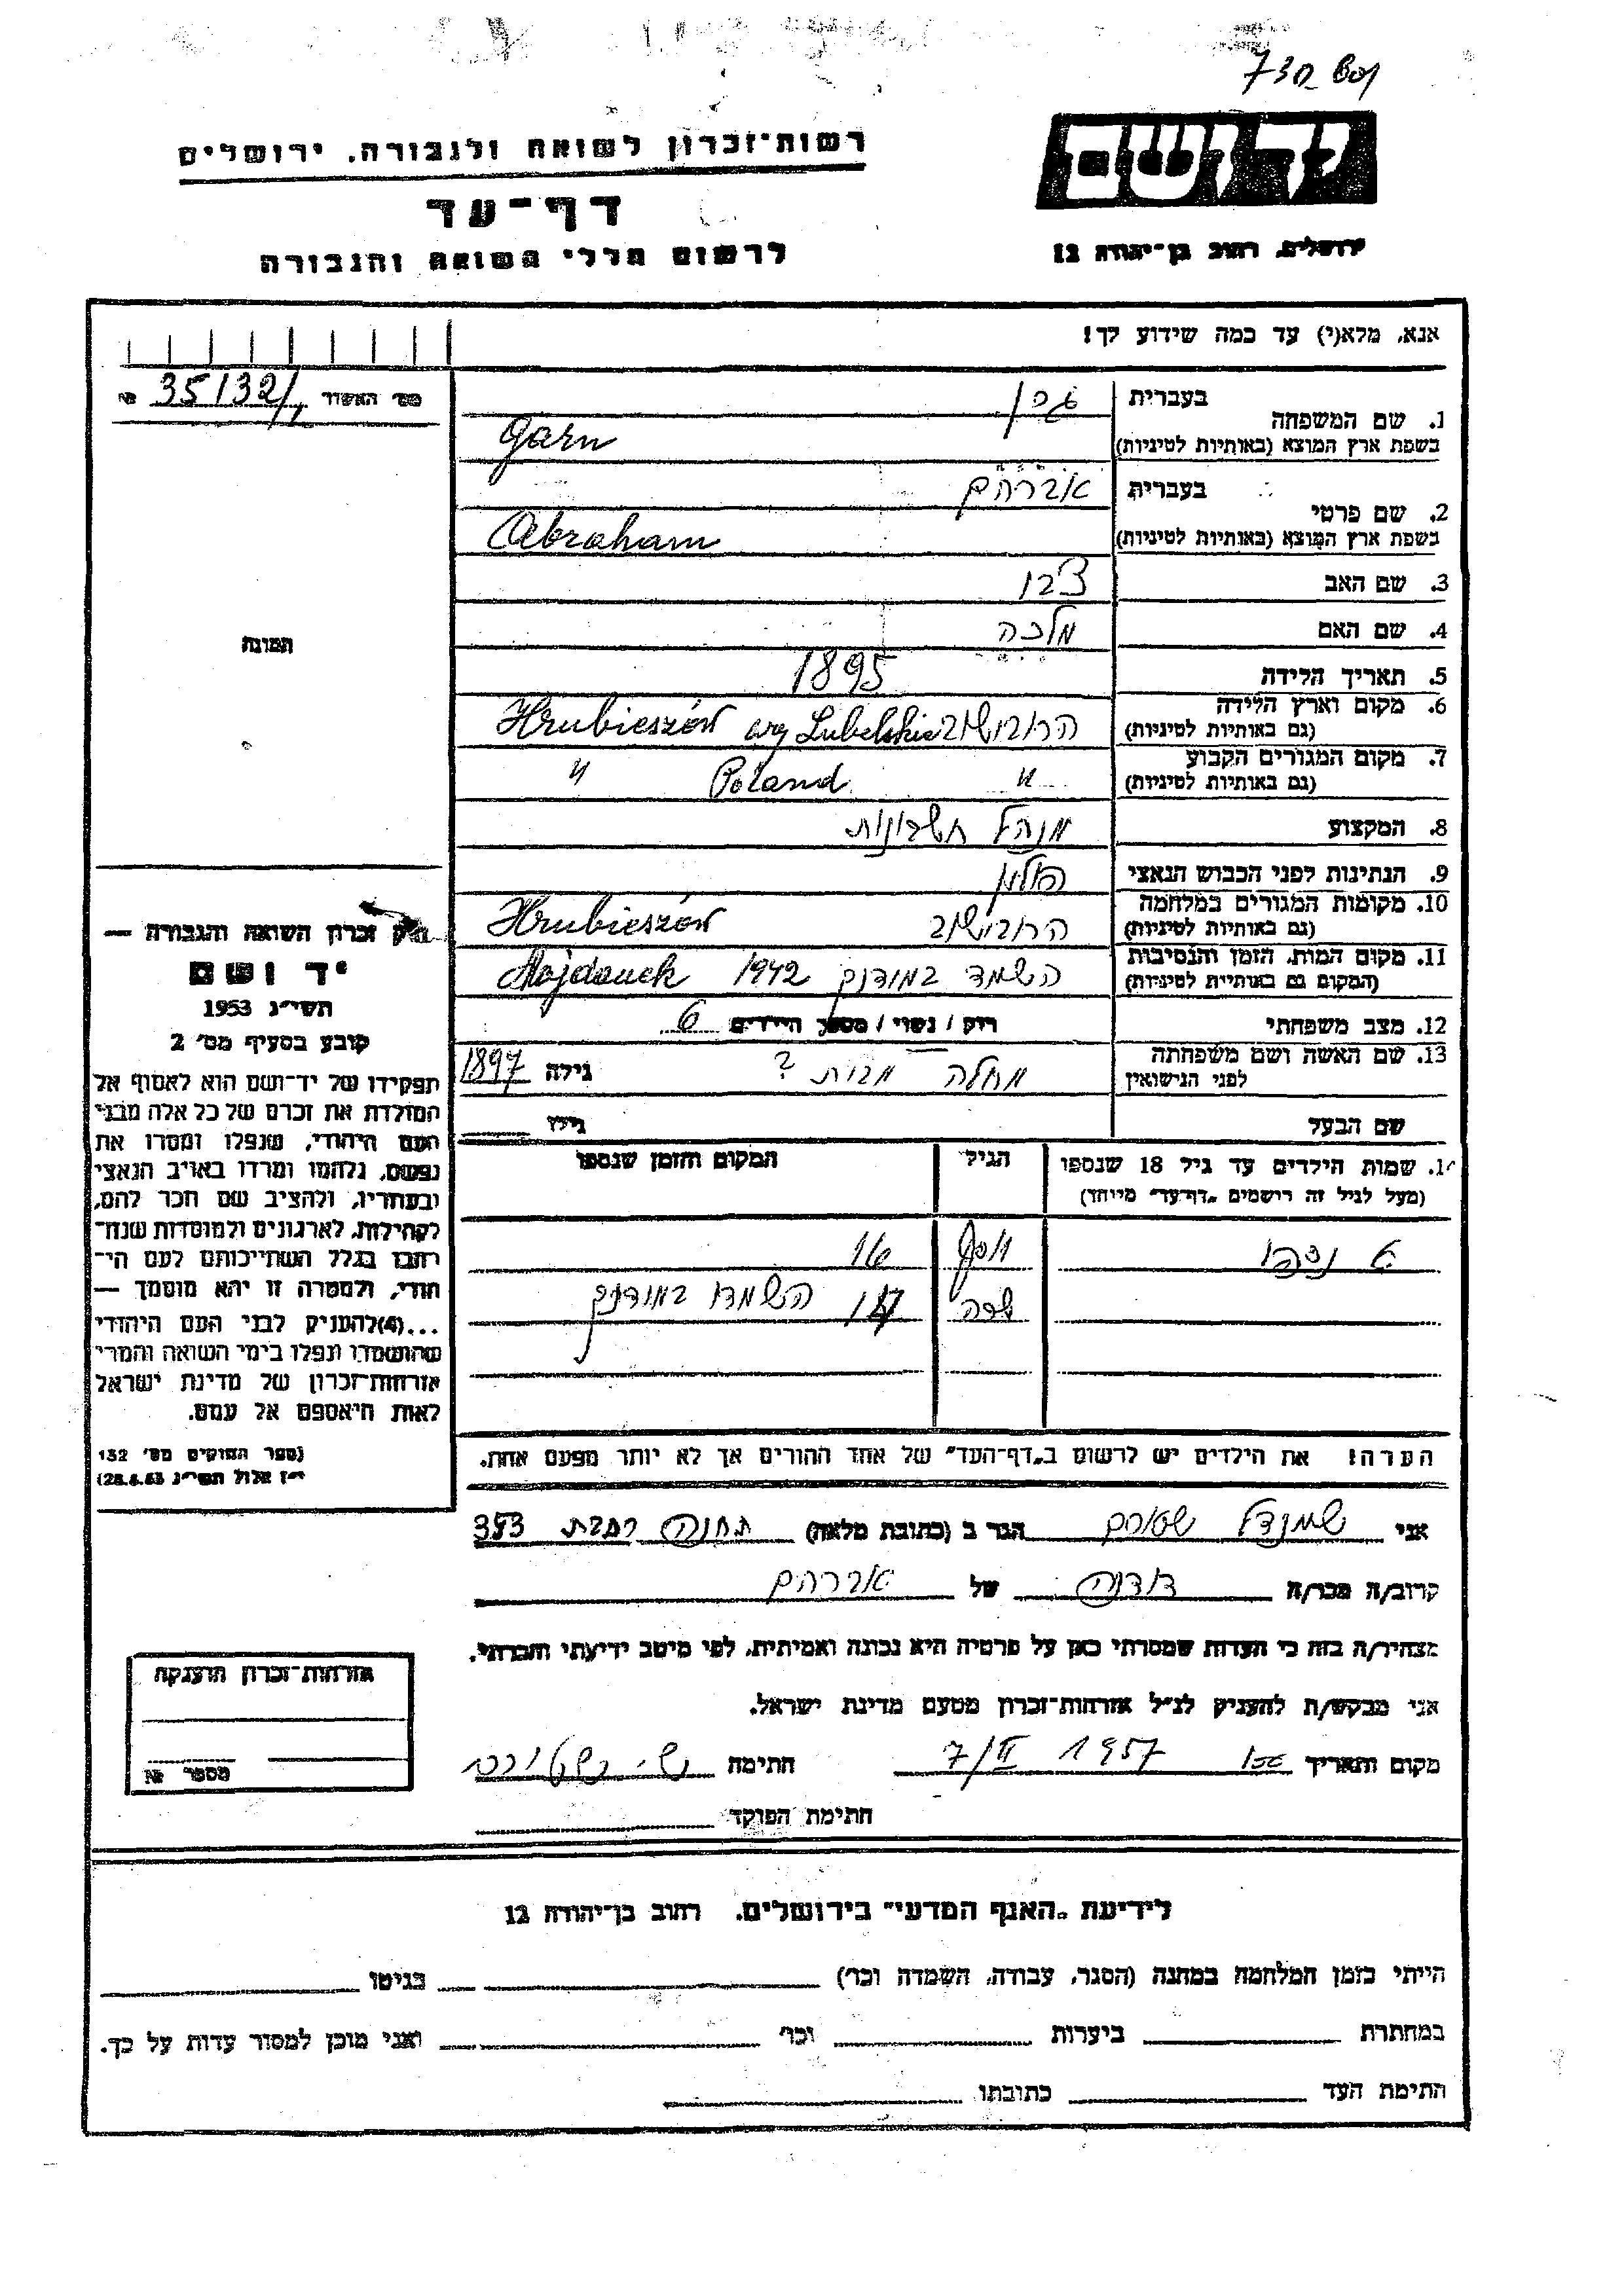 יד ושם
רשות־זכרון לשואה ולגבורה, ירושלים
דף־עד
לרשום חללי השואה והגבורה
ירושלים, רחוב בן־יהודה 12
אנא, מלא(י) עד כמה שידוע לך!
מס׳ האשור № 35132/1
1. שם המשפחה
בעברית גרן
בשפת ארץ המוצא (באותיות לטיניות) Garn
2. שם פרטי
בעברית אברהם
בשפת ארץ המוצא (באותיות לטיניות) Abraham
3. שם האב
4. שם האם מלכה
5. תאריך הלידה 1895
6. מקום וארץ הלידה
(גם באותיות לטיניות) הרובישוב Hrubieszów Lubelskie
7. מקום המגורים הקבוע
(גם באותיות לטיניות) " Poland "
8. המקצוע מנהל חשבונות
9. הנתינות לפני הכבוש הנאצי פולין
10. מקומות המגורים במלחמה
(גם באותיות לטיניות) הרובישוב Hrubieszów
11. מקום המות, הזמן והנסיבות
(המקום גם באותיות לטיניות) השמד במידנק 1942 Majdanek
12. מצב משפחתי רוק / נשוי / מספר הילדים 6
13. שם האשה ושם משפחתה
לפני הנישואין מחלה ? גילה 1897
שם הבעל גילו
14. שמות הילדים עד גיל 18 שנספו
(מעל לגיל זה רושמים „דף־עד" מיוחד)
הגיל
המקום והזמן שנספו
יוסף 16
שרה השמדו במידנק
הערה! את הילדים יש לרשום ב„דף־העד" של אחד ההורים אך לא יותר מפעם אחת.
התמונה
חוק זכרון השואה והגבורה —
יד ושם
תשי״ג 1953
קובע בסעיף מס׳ 2
תפקידו של יד־ושם הוא לאסוף אל
המולדת את זכרם של כל אלה מבני
העם היהודי, שנפלו ומסרו את
נפשם, נלחמו ומרדו באויב הנאצי
ובעוזריו, ולהציב שם וזכר להם,
לקהילות, לארגונים ולמוסדות שנח־
רבו בגלל השתייכותם לעם הי־
הודי, ולמטרה זו יהא מוסמך —
...(4) להעניק לבני העם היהודי
שהושמדו ונפלו בימי השואה והמרי
אזרחות־זכרון של מדינת ישראל
לאות היאספם אל עמם.
(ספר החוקים מס׳ 132
י״ז אלול תשי״ג 28.8.53)
אני הגר ב (כתובת מלאה) 353
קרוב/ה מכר/ה דודנה של אברהם
מצהיר/ה בזה כי העדות שמסרתי כאן על פרטיה היא נכונה ואמיתית, לפי מיטב ידיעתי והכרתי.
אני מבקש/ת להעניק לנ״ל אזרחות־זכרון מטעם מדינת ישראל.
מקום ותאריך 7/II 1957 חתימה
חתימת הפוקד
אזרחות־זכרון הוענקה
מספר №
לידיעת „האגף המדעי" בירושלים, רחוב בן־יהודה 12
הייתי בזמן המלחמה במחנה (הסגר, עבודה, השמדה וכו׳) בגיטו
במחתרת ביערות וכו׳ ואני מוכן למסור עדות על כך.
חתימת העד כתובתו